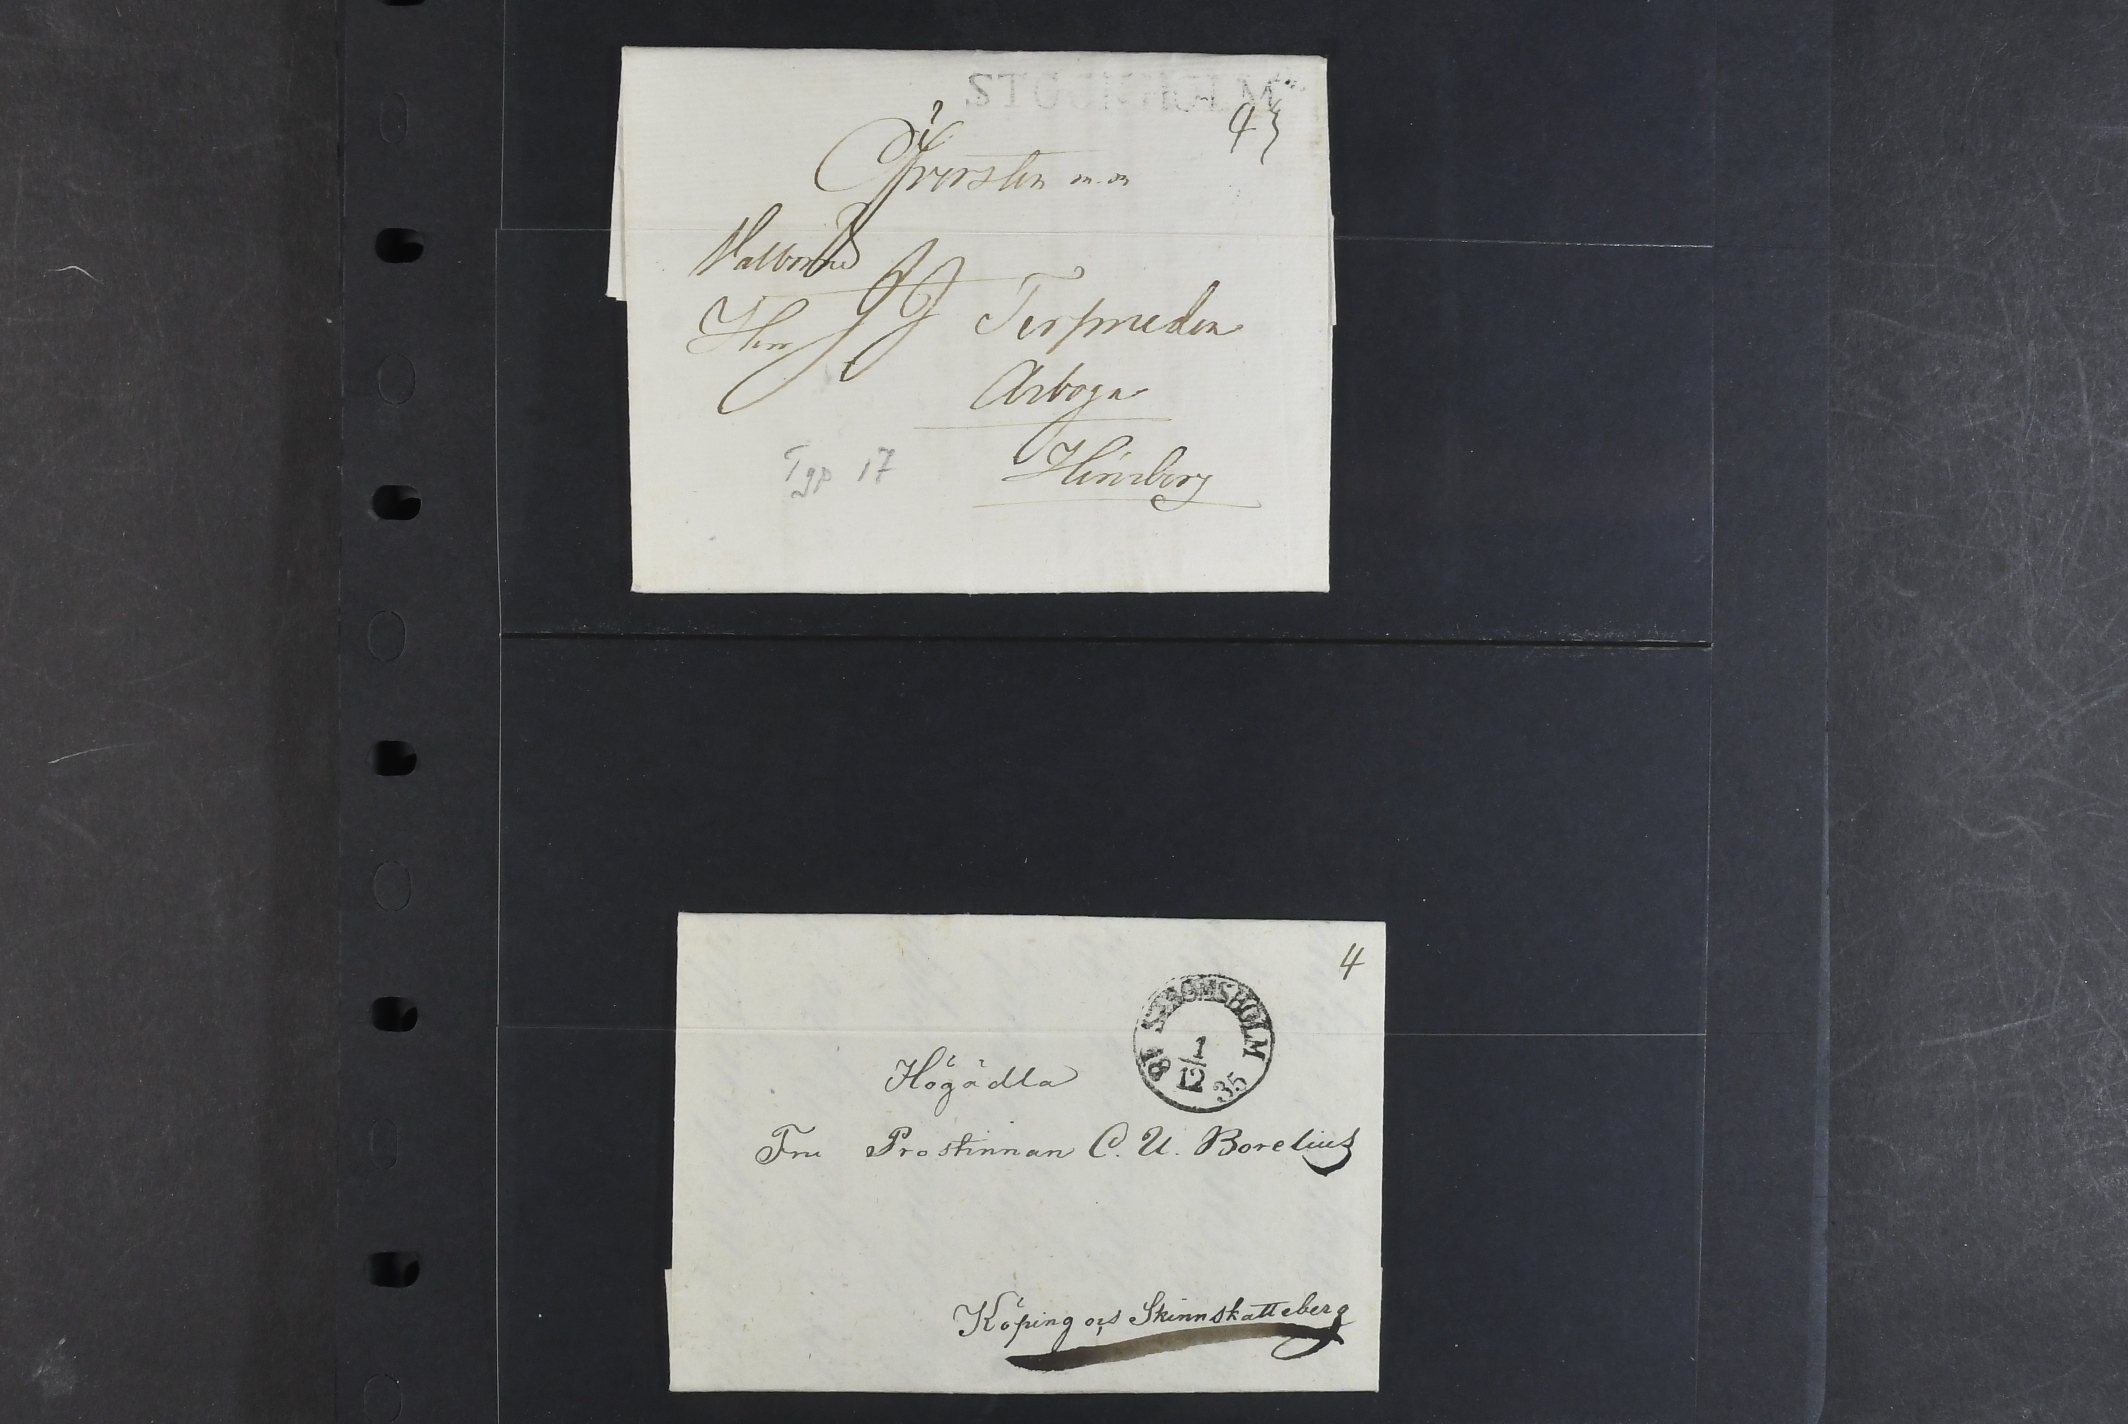 STOCKHOLM
Öfversten m. m
Välborne
Herr
Arboga
Typ 17
4
STRÖMSHOLM
1
12
18 35
Högädla
Fru Prostinnan C. U. Borelius
Köping och Skinnskatteberg